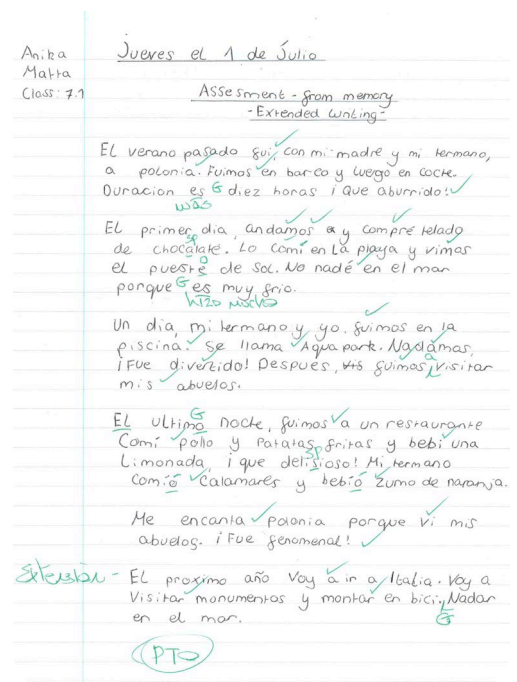 Jueves el 1 de Julio
Anika
Matta
Class: 7.1
Assesment - from memory
- Extended writing -
El verano pasado fui, con mi madre y mi hermano,
a polonia. Fuimos en barco y luego en coche.
Duracion es G diez horas ¡ Que aburrido!
was
El primer dia, andamos a y compré helado
sp
de chocalate. Lo comí en la playa y vimos
o
el pueste de sol. No nadé en el mar
porque G es muy frio.
hizo mucho
Un dia, mi hermano y yo, fuimos en la
piscina. Se llama Aquapark. Nadamos,
¡Fue divertido! Despues, fuimos, visitar
a
mis abuelos.
G
El ultimo noche, fuimos a un restaurante
Comí pollo y Patatas fritas y bebí una
sp
Limonada, ¡ que delisioso! Mi hermano
Comió Calamares y bebió zumo de naranja.
Me encanta polonia porque vi mis
abuelos. ¡ Fue fenomenal!
Extensión - El proximo año voy a ir a Italia. Voy a
Visitar monumentos y montar en bici, Nadar
G
en el mar.
PTO